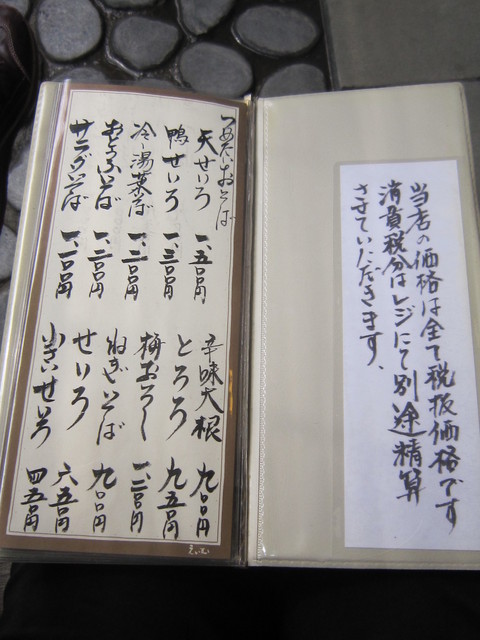 つめたいおそば
天せいろ 一、五〇〇円
鴨せいろ 一、三〇〇円
冷し湯葉そば 一、二〇〇円
おとうふそば 一、二〇〇円
サラダそば 一、二〇〇円
辛味大根 九〇〇円
とろろ 九五〇円
梅おろし 一、二〇〇円
ねぎそば 九〇〇円
せいろ 六五〇円
小さいせいろ 四五〇円
当店の価格は全て税抜価格です
消費税分はレジにて別途精算
させていただきます、